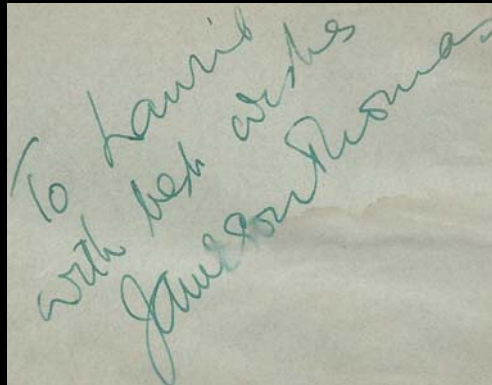 To Laurie
with best wishes
Jameson Thomas